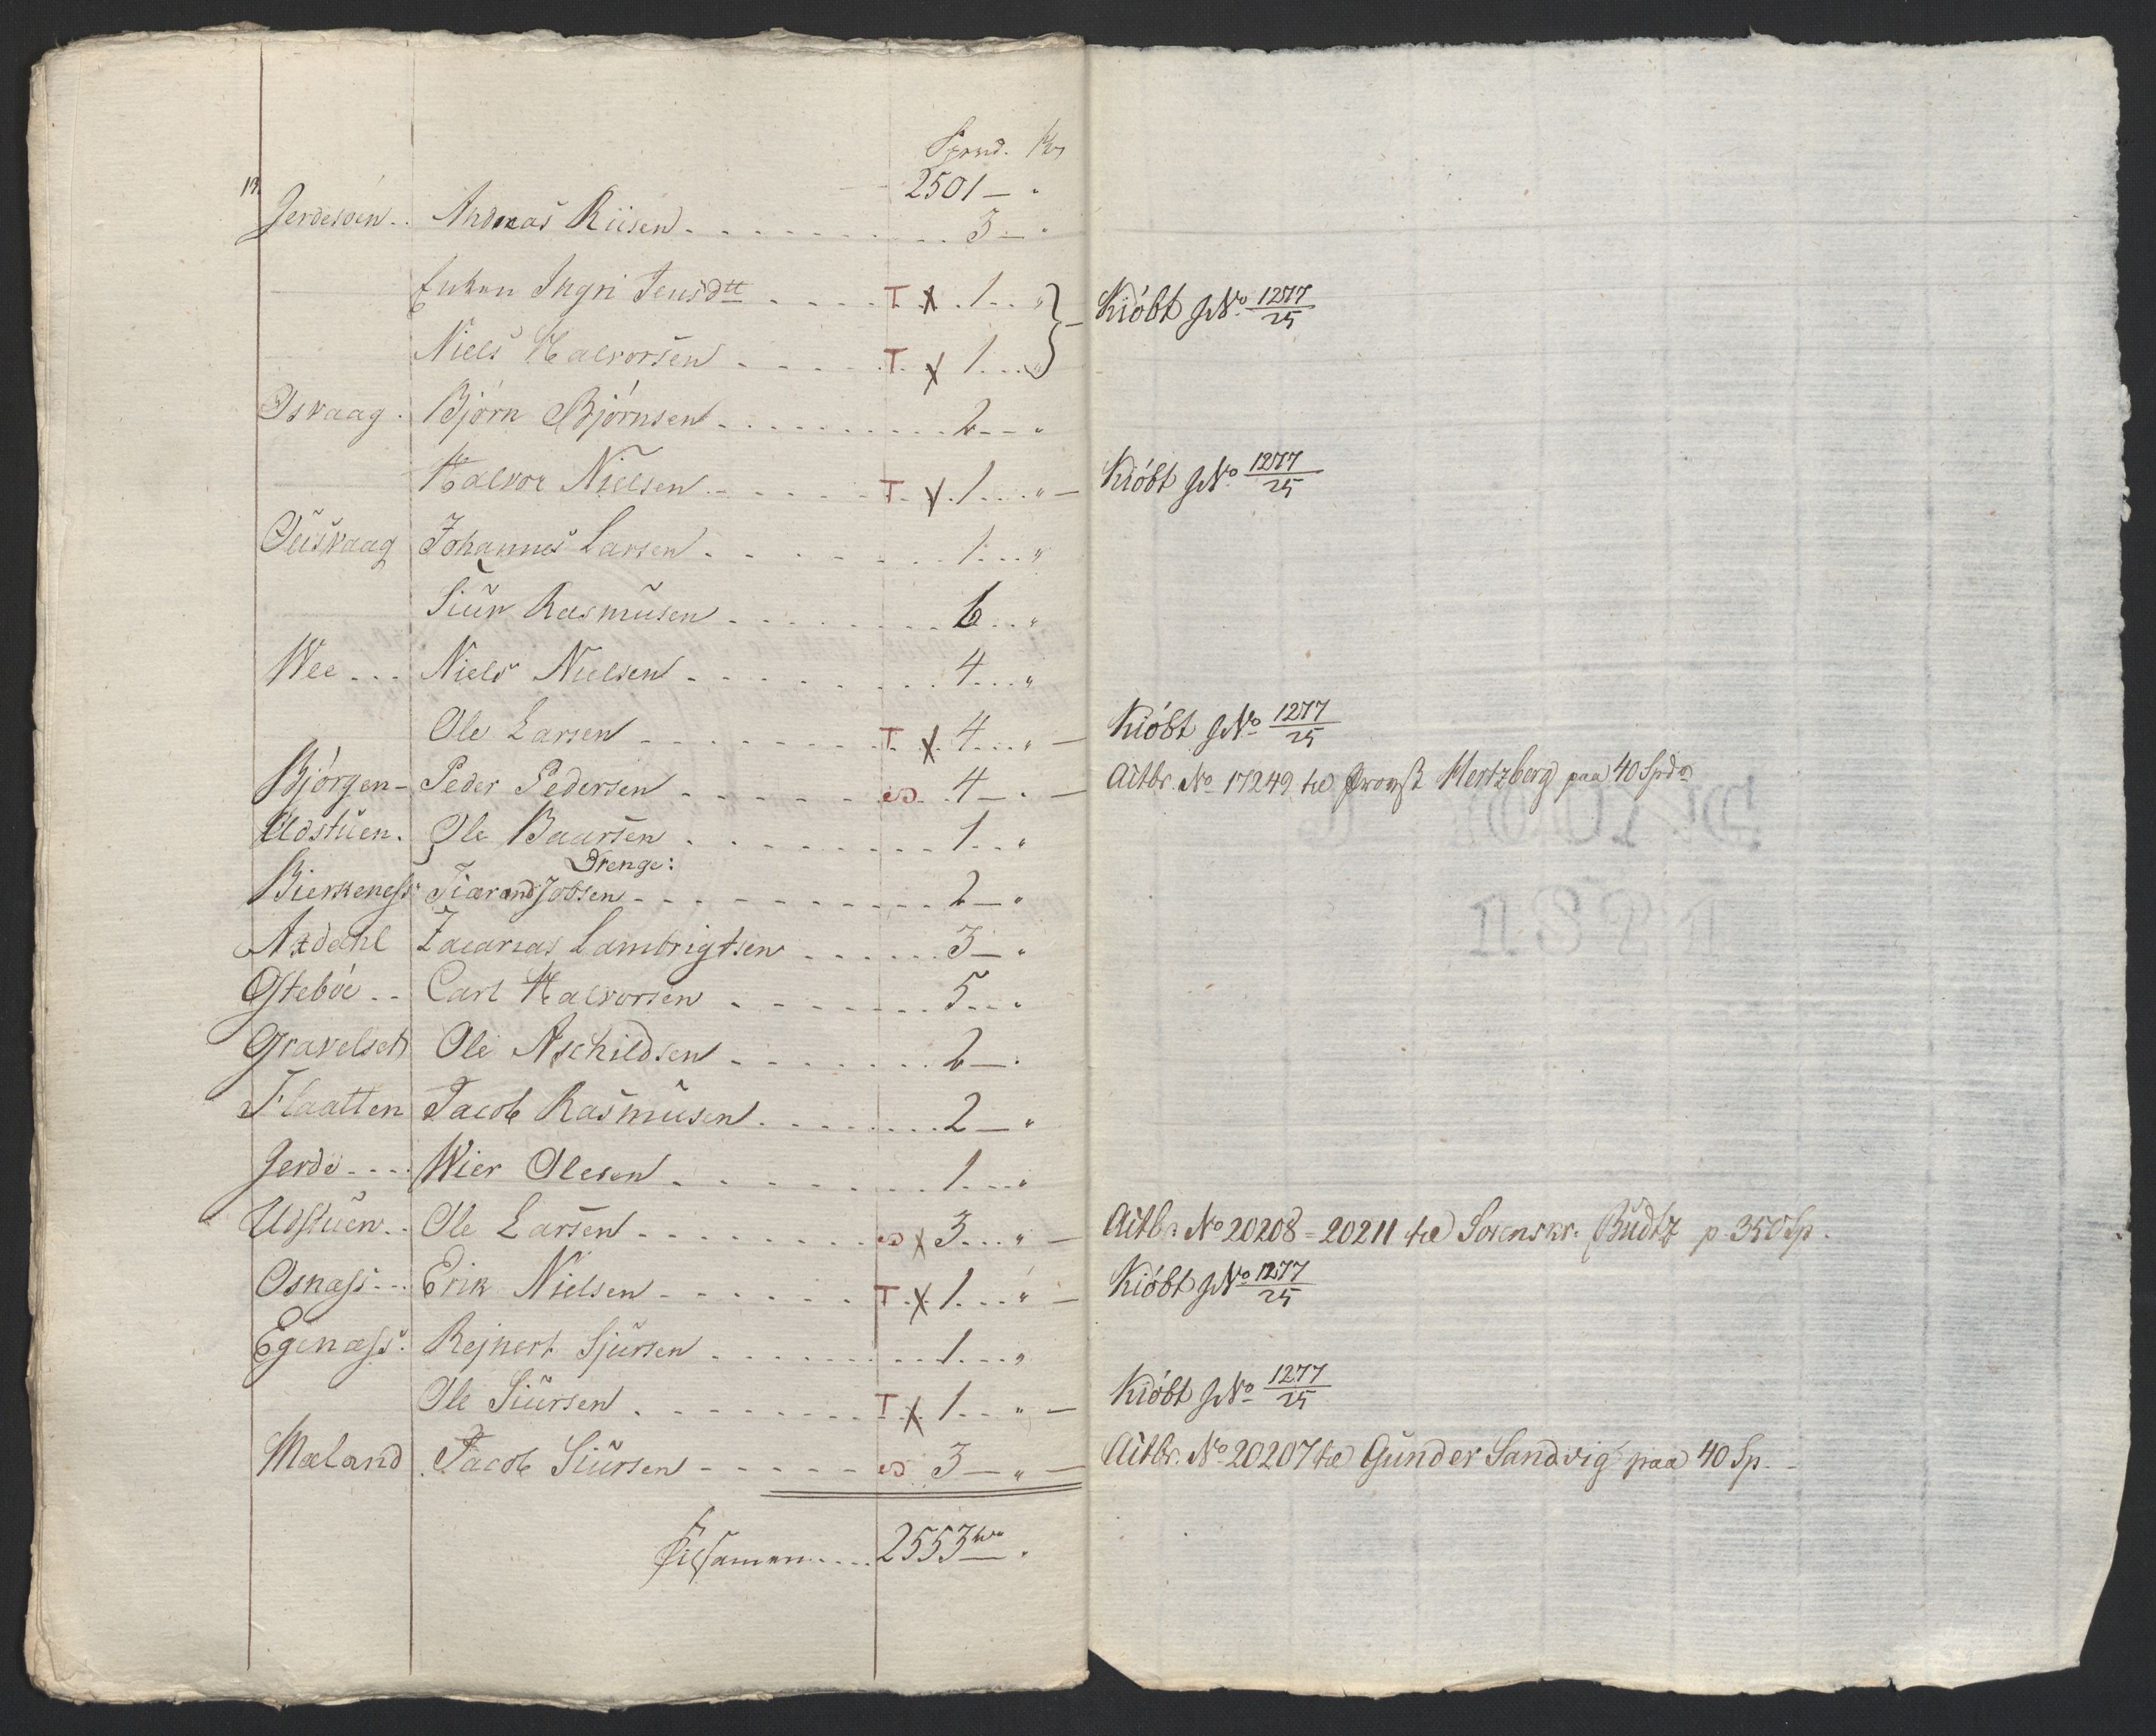 Spvd. 
2501 — "
Jerdesøen . . Andreas Riisen . . . 3 — "
Enken Ingri Jensdtt . . . T. X . 1 . . " } — Kiöbt JNo 1277/25
Niels Halvorsen . . . T. X 1 . . . "
Isvaag . Bjørn Bjørnsen . . . 2 — "
Halvor Nielsen . . . T. X . 1 . . . " — Kiöbt JNo 1277/25
Øuisvaag Johannes Larsen . . . 1 . . . "
Siur Rasmusen . . . 6 . . "
Wee . . . Niels Nielsen . . . 4 . . . "
Ole Larsen . . . T. X . 4 . . . " — Kiöbt JNo 1277/25
Bjørgen - Peder Pedersen . . . 4 — . — Actbr. No 17249 til Provst Hertzberg paa 40 Spd
Udstuen . Ole Baarsen . . . 1 . . "
Drenge:
Bierkeness Tiærand Jobsen . . . 2 — "
Axdahl Zacarias Lambrigtsen . . . 3 — "
Østebøe . . Carl Halvorsen . . . 5 . . "
Gravelseth Ole Aschildsen . . . 2 — .
Flaatten Jacob Rasmusen . . . 2 — "
Jerde . . . Wier Olesen . . . 1 . . . "
Udstuen . . Ole Larsen . . . X 3 . . . " — Actbr No 20208 = 20211 til Sorenskr. Budtz p. 350 Sp.
Osnæss . . . Erik Nielsen . . . T . X 1 . . . " — Kiöbt JNo 1277/25
Egenæss . Rejnert Sjursen . . . 1 . . . "
Ole Siursen . . . T. X 1 . . " — Kiöbt JNo 1277/25
Mæland . Jacob Siursen . . . 3 — " — Actbr. No 20207 til Gunder Sandvig paa 40 Sp. -
Tilsamen . . . 2553 .